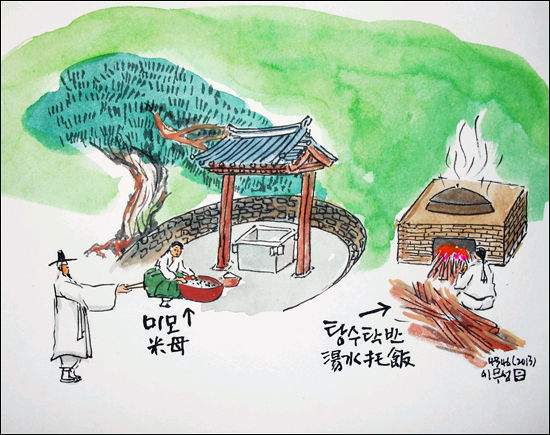 미모
米母
탕수탁반
湯水托飯
4346(2013)
이무성